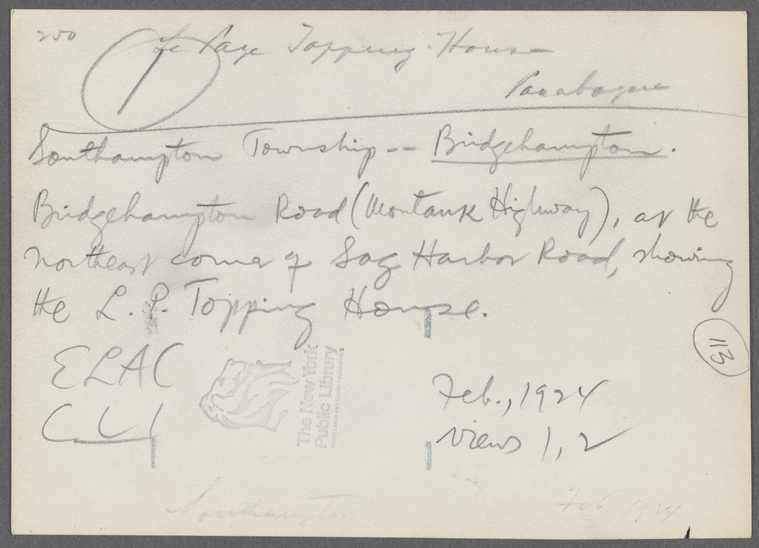 200
1
Page Topping House
Southampton Township -- Bridgehampton.
Bridgehampton Road (Montauk Highway), at the
northeast corner of Sag Harbor Road, showing
the L. P. Topping House.
113
ELAC
The New York
Public Library
Feb., 1924
Views 1, 2
Southampton
Feb 1924